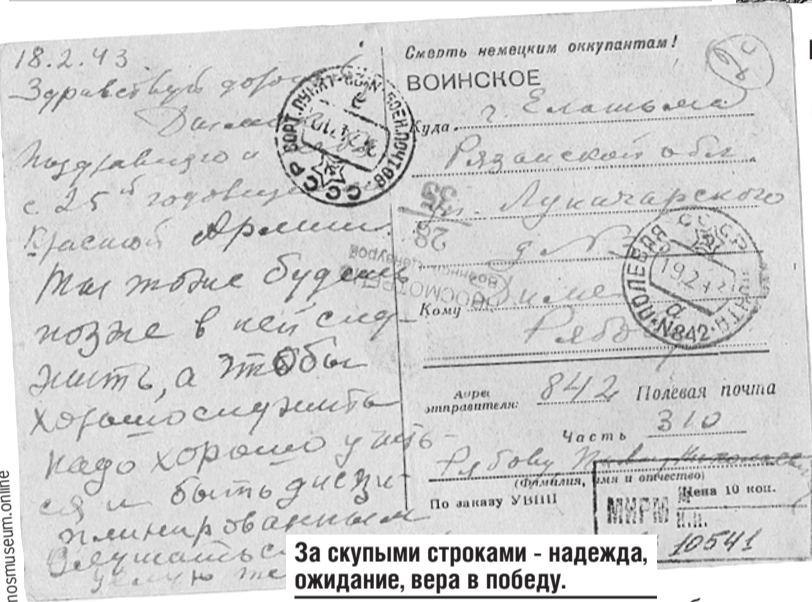 18.2.43
Здравствуй
Поздравляю
с 25й годовщ
Красной Армии.
Ты тоже будешь
позже в ней слу-
жить, а чтобы
хорошо служить
надо хорошо учить-
ся и быть дисци-
плинированным
Слушаться
Смерть немецким оккупантам!
ВОИНСКОЕ
Куда г. Елатьма
Рязанской обл
ул. Луначарского
д №
Кому
Рябо
Адрес отправителя: 842 Полевая почта
Часть 310
Рябову
(Фамилия, имя и отчество)
По заказу УВПП
Цена 10 коп.
СССР СОРТ. ПУНКТ
ПОЛЕВАЯ ПОЧТА
СССР
19.2
№842
а
ПРОСМОТРЕНО
Военной Цензурой
28
МИРМ
10541
За скупыми строками - надежда,
ожидание, вера в победу.
mosmuseum.online